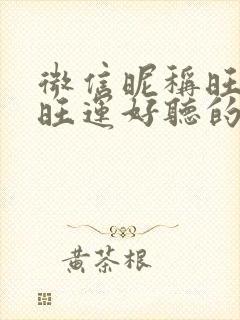 微信昵稱旺
旺運好聽的
黄茶根